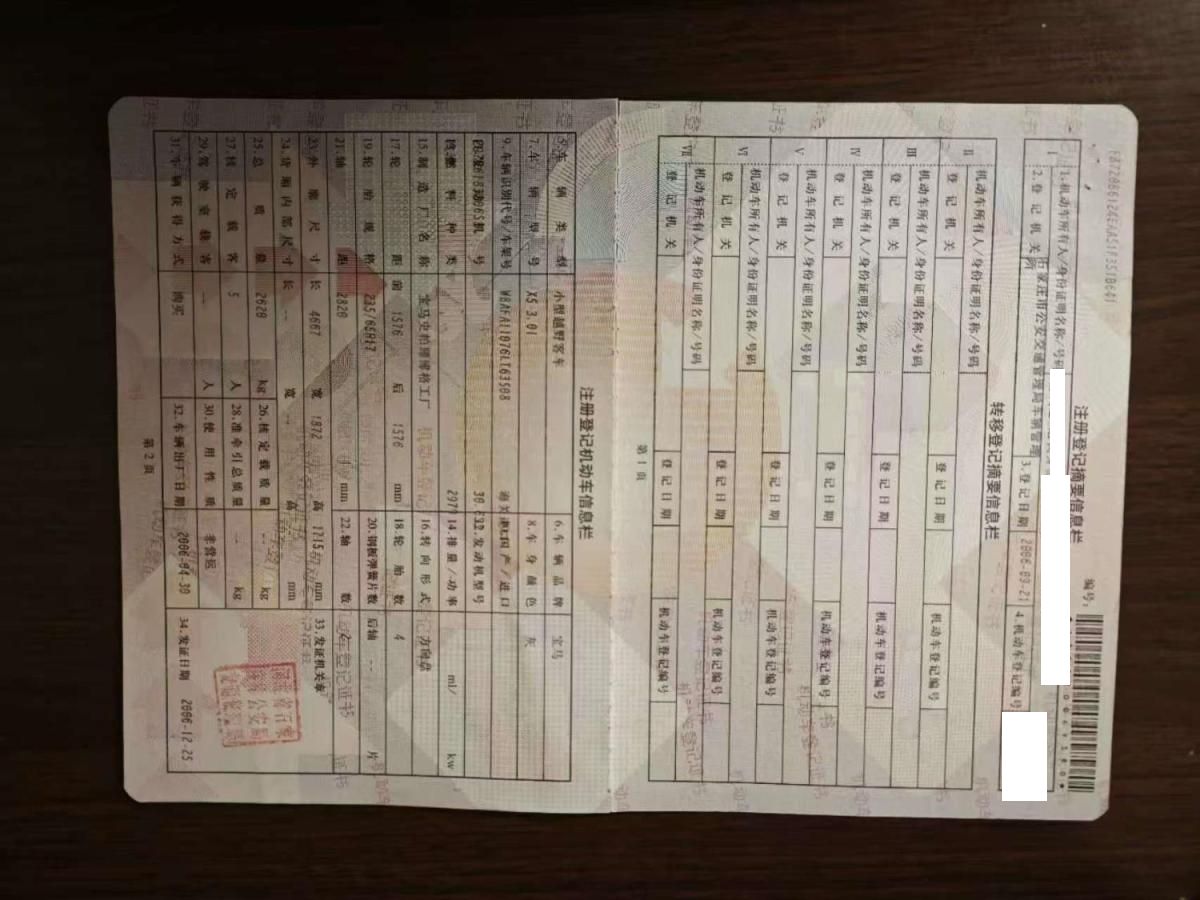 注册登记摘要信息栏
编号:
I
1.机动车所有人/身份证明名称/号码
2.登记机关
石家庄市公安交通管理局车辆管理所
3.登记日期
2006-09-21
4.机动车登记编号
转移登记摘要信息栏
II
机动车所有人/身份证明名称/号码
登记机关
登记日期
机动车登记编号
III
机动车所有人/身份证明名称/号码
登记机关
登记日期
机动车登记编号
IV
机动车所有人/身份证明名称/号码
登记机关
登记日期
机动车登记编号
V
机动车所有人/身份证明名称/号码
登记机关
登记日期
机动车登记编号
VI
机动车所有人/身份证明名称/号码
登记机关
登记日期
机动车登记编号
VII
机动车所有人/身份证明名称/号码
登记机关
登记日期
机动车登记编号
第1页
注册登记机动车信息栏
5.车辆类型 小型越野客车 6.车辆品牌 宝马
7.车辆型号 X5 3.0i 8.车身颜色 灰
9.车辆识别代号/车架号 10.国产/进口
12.发动机型号
燃料种类 14.排量/功率 ml/ kw
15.制造厂名称 宝马史帕坦博格工厂 16.转向形式 方向盘
17.轮距 前 1576 后 1576 mm 18.轮胎数 4
19.轮胎规格 235/65R17 20.钢板弹簧片数 后轴 -- 片
21.轴距 2820 mm 22.轴数 2
23.外廓尺寸 长 4667 宽 1872 高 1715 mm 33.发证机关章
24.货厢内部尺寸 长 -- 宽 高 mm
25.总质量 2620 kg 26.核定载质量 -- kg
27.核定载客 5 人 28.准牵引总质量 -- kg
29.驾驶室载客 -- 人 30.使用性质 非营运
31.车辆获得方式 购买 32.车辆出厂日期 2006-04-30 34.发证日期 2006-12-25
第2页